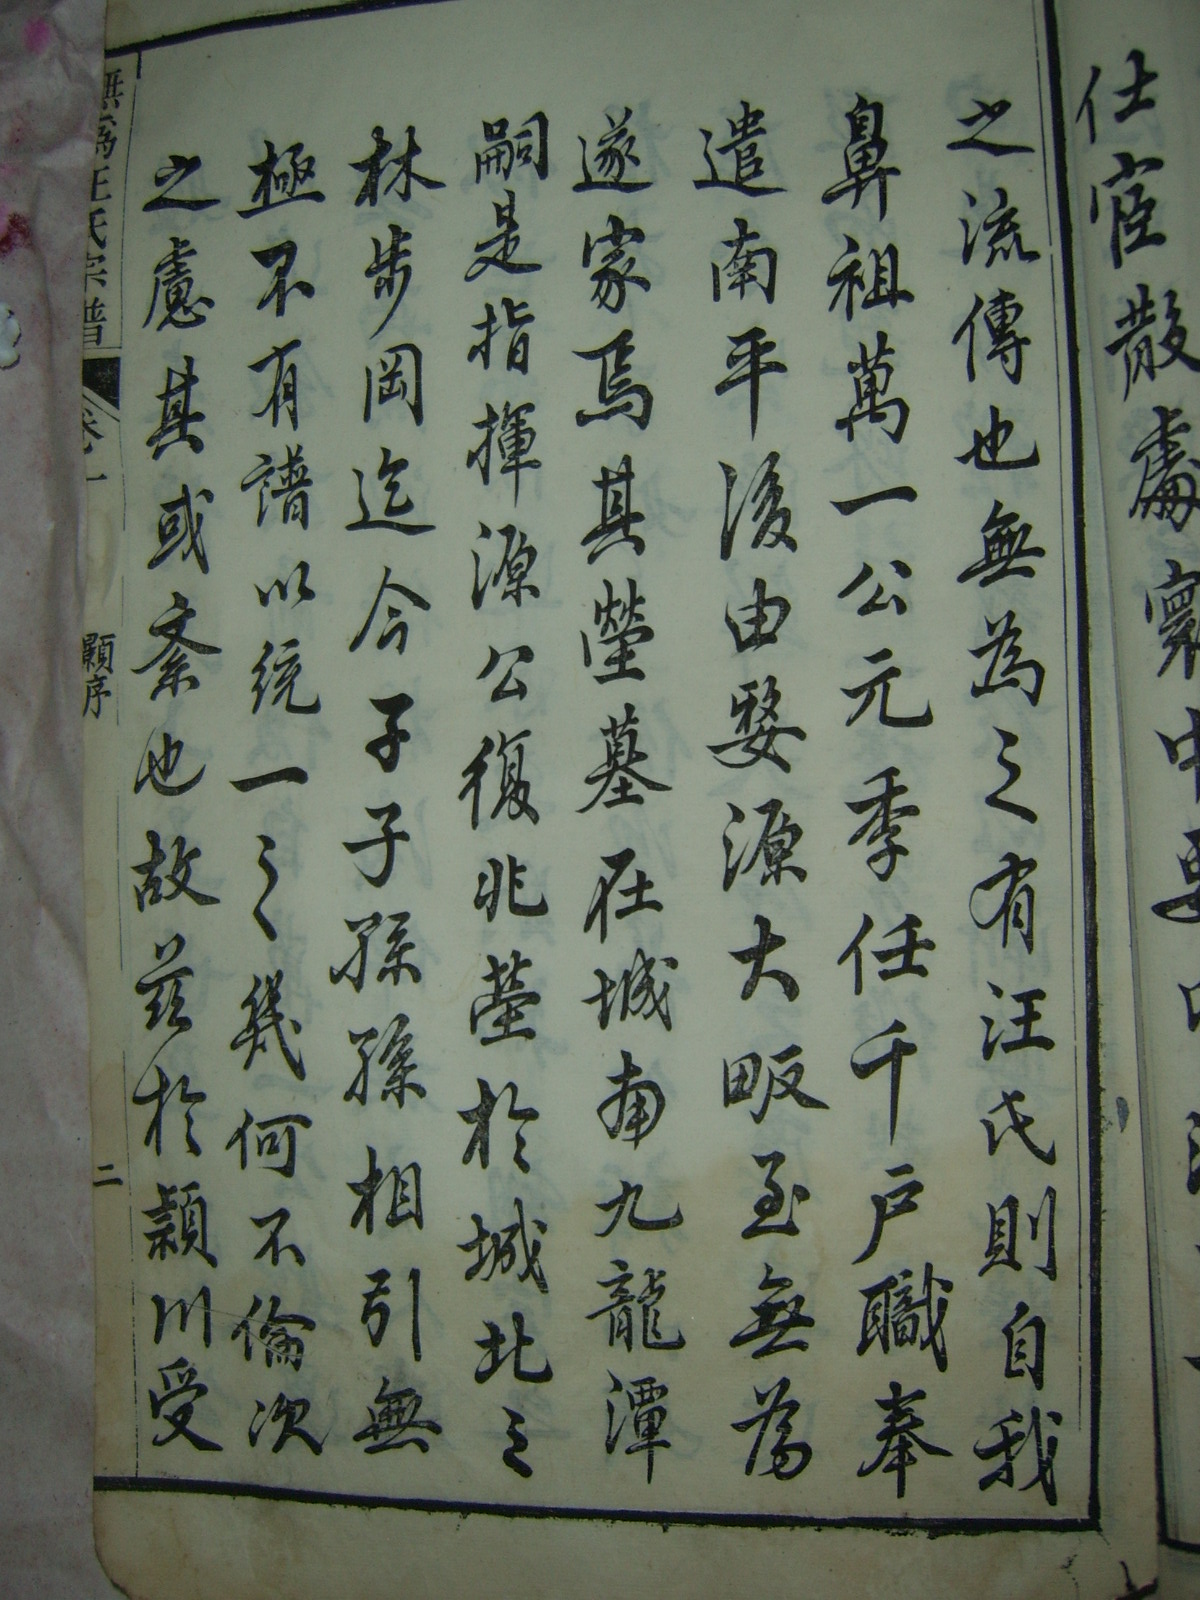 仕宦散處寰中
之流傳也無為之有汪氏則自我
鼻祖萬一公元季任千戶職奉
遣南平後由婺源大畈至無為
遂家焉其塋墓在城南九龍潭
嗣是指揮源公復兆塋於城北之
林步岡迄今子子孫孫相引無
極不有譜以統一之幾何不倫次
之慮其或紊也故茲於潁川受
無為汪氏宗譜 卷一 顯序 二